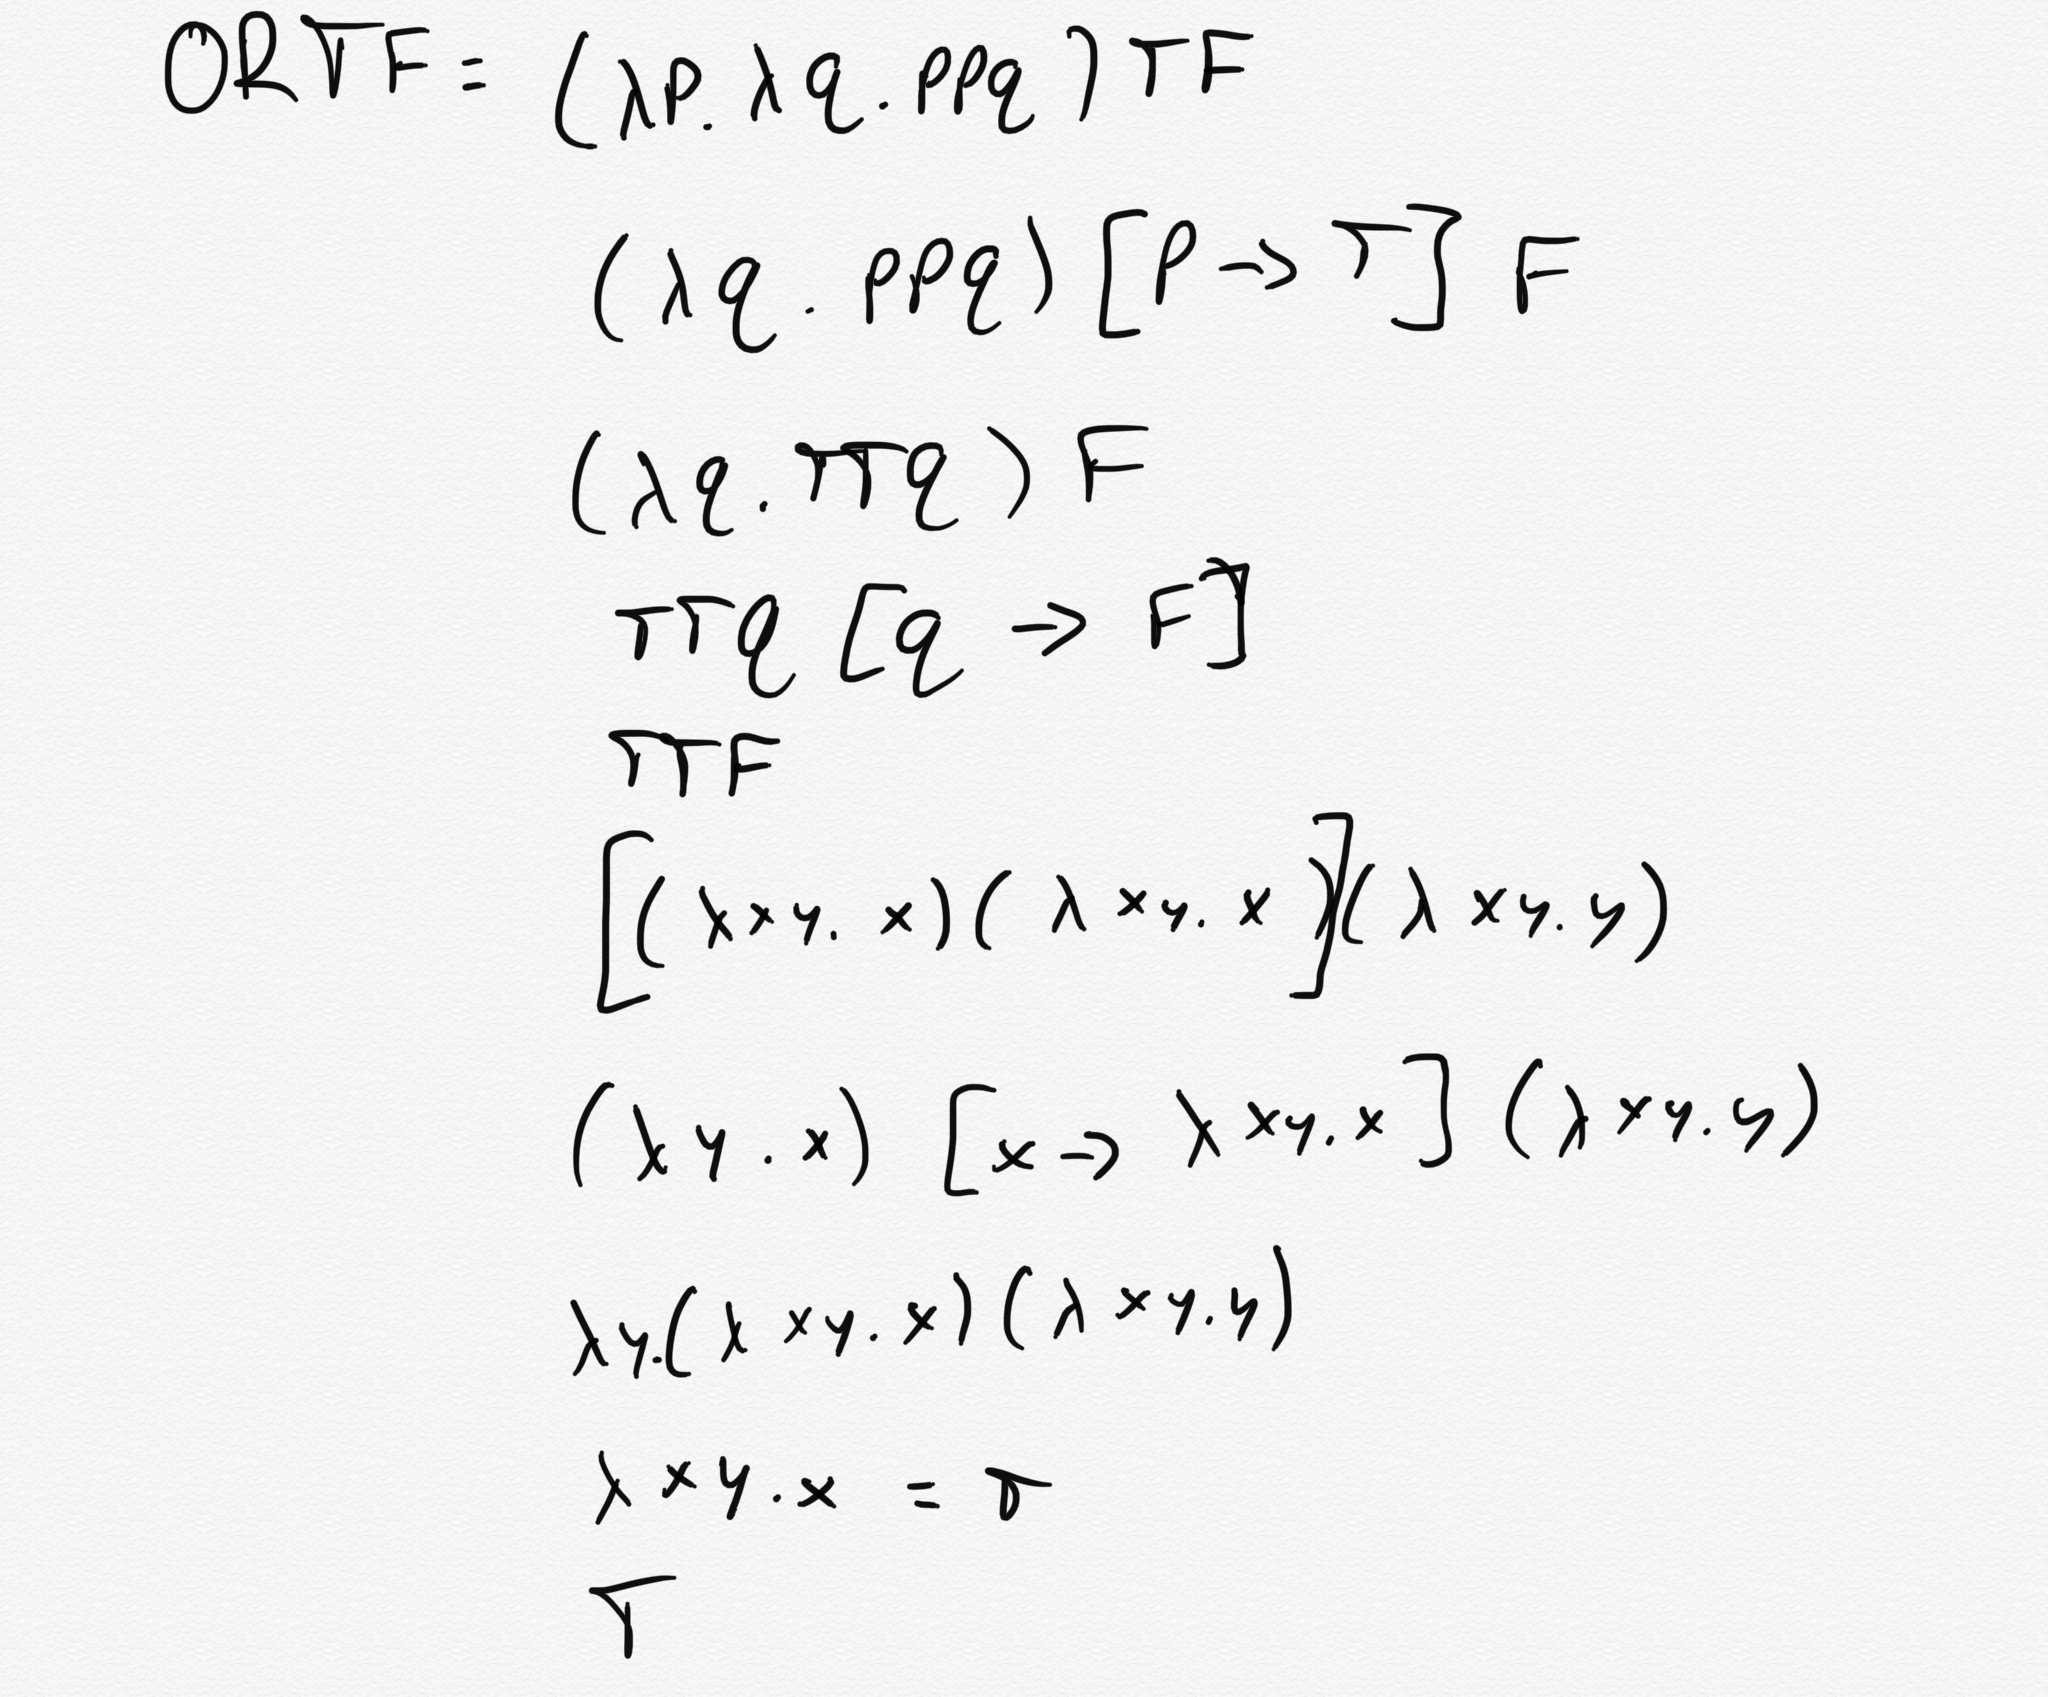 ORTF = (λp.λq.ppq)TF
(λq.ppq)[p→T]F
(λq.TTq)F
TTq[q→F]
TTF
[(λxy.x)(λxy.x)](λxy.y)
(λy.x)[x→λxy.x](λxy.y)
λy.(λxy.x)(λxy.y)
λxy.x = T
T